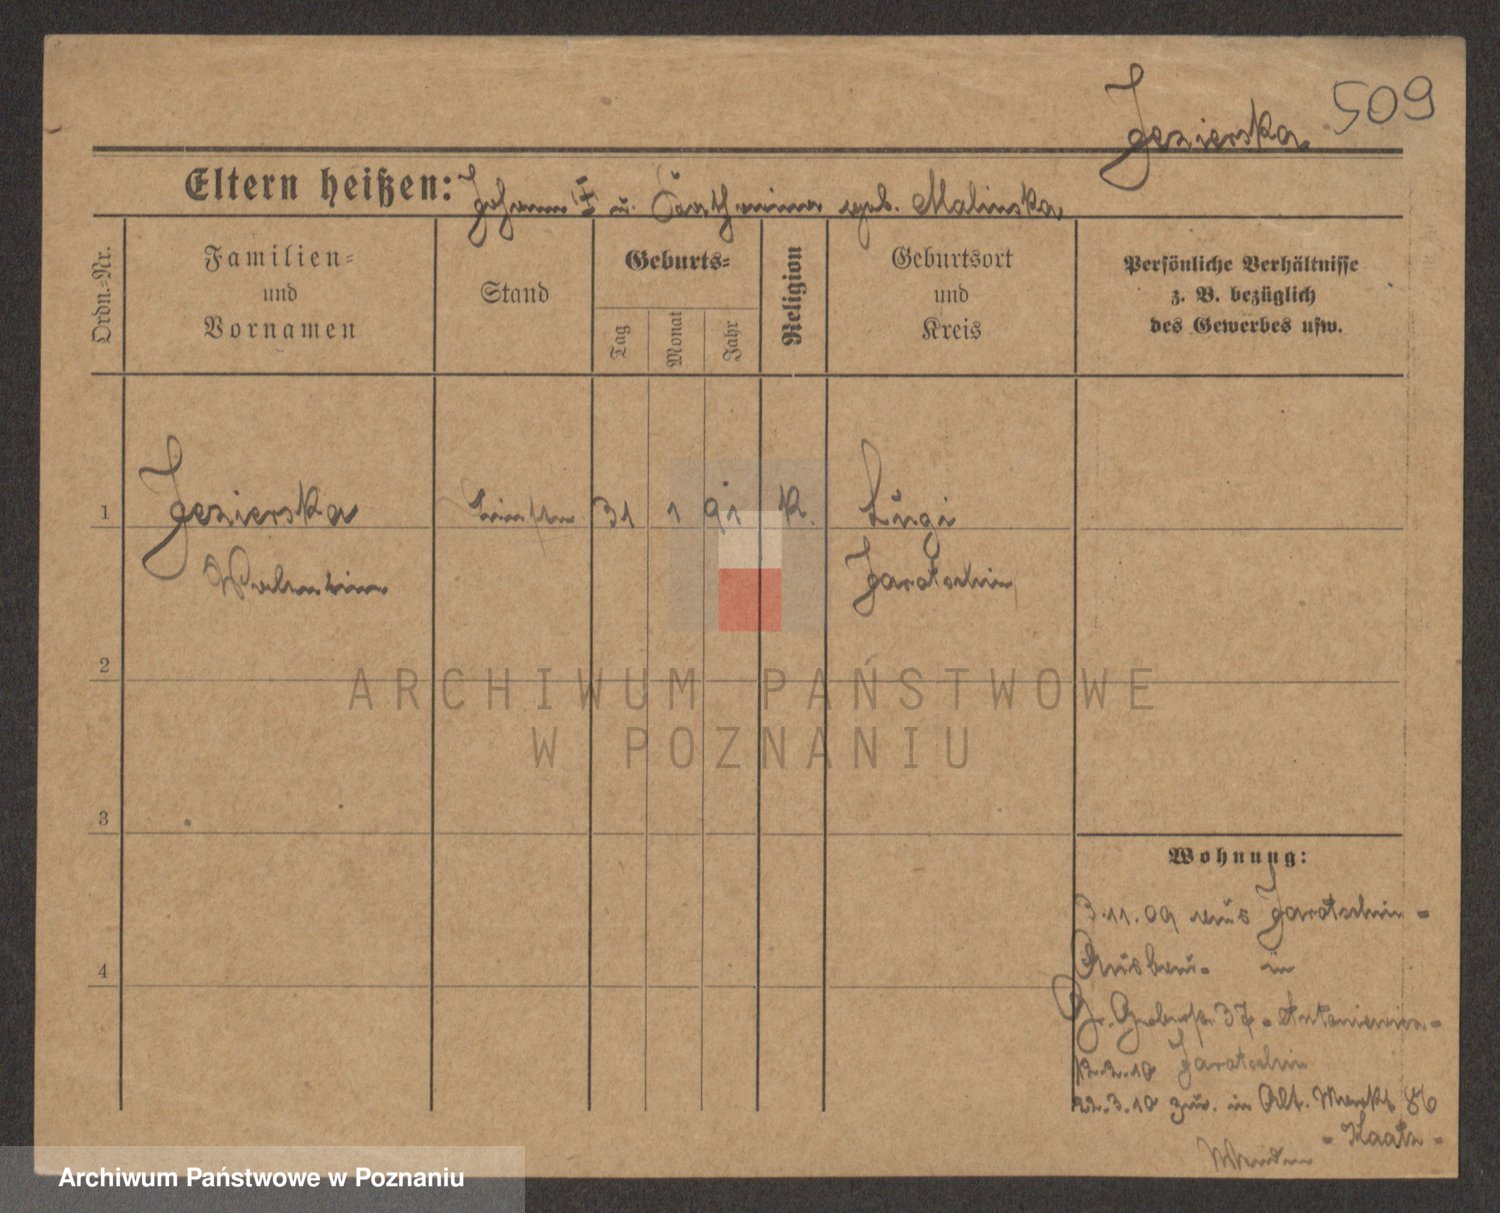 509
Jezierska
Eltern heißen: Johann u. Katharina geb. Malinska
Ordn.-Nr.
Familien-
und
Vornamen
Stand
Geburts-
Tag
Monat
Jahr
Religion
Geburtsort
und
Kreis
Persönliche Verhältnisse
z. B. bezüglich
des Gewerbes usw.
1
Jezierska
31
1
91
K.
Ługi
Valentine
Jarotschin
2
ARCHIWUM PAŃSTWOWE
W POZNANIU
3
Wohnung:
3.11.09 aus Jarotschin -
4
in
Gr. Gerberstr. 37 - Antoniewicz -
12.2.10 Jarotschin
22.3.10 zur. in Alt. Markt 86
- Kaatz -
Archiwum Państwowe w Poznaniu